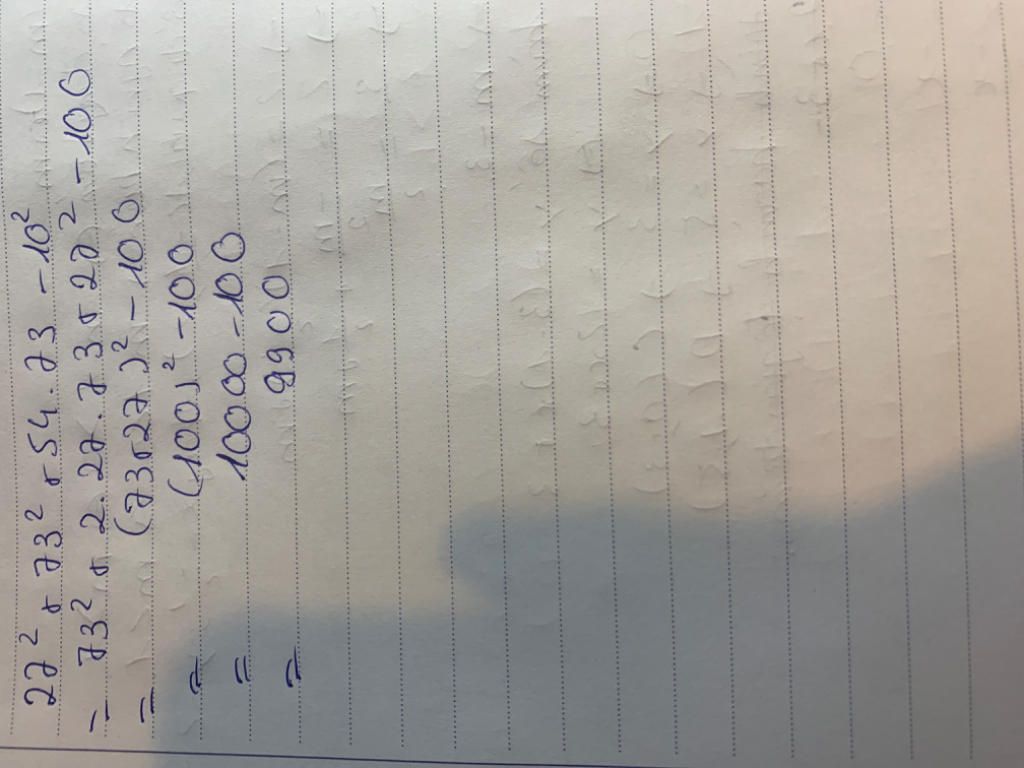 27² + 73² + 54.73 - 10²
= 73² + 2.27.73 + 27² - 100
= (73+27)² - 100
= (100)² - 100
= 10000 - 100
= 9900